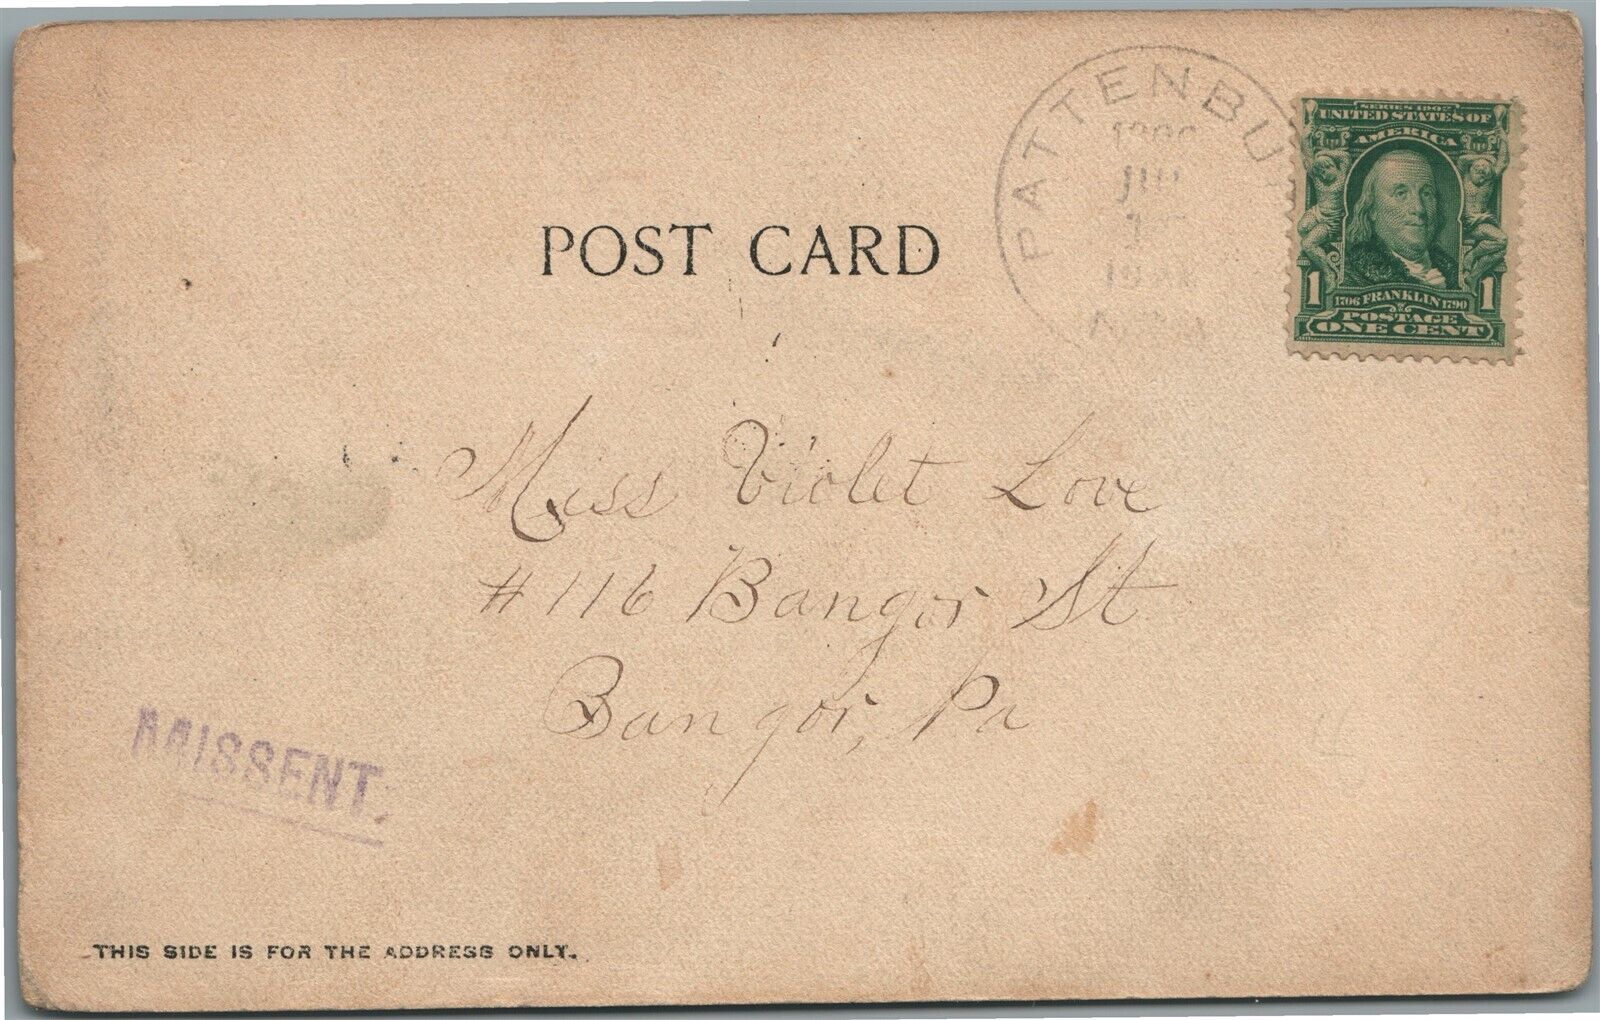 PATTENBU
SERIES 1902
UNITED STATES OF
AMERICA
1 1706 FRANKLIN 1790 1
POSTAGE
ONE CENT
POST CARD
Miss Violet Love
#116 Bangor St
Bangor, Pa
MISSENT.
THIS SIDE IS FOR THE ADDRESS ONLY.